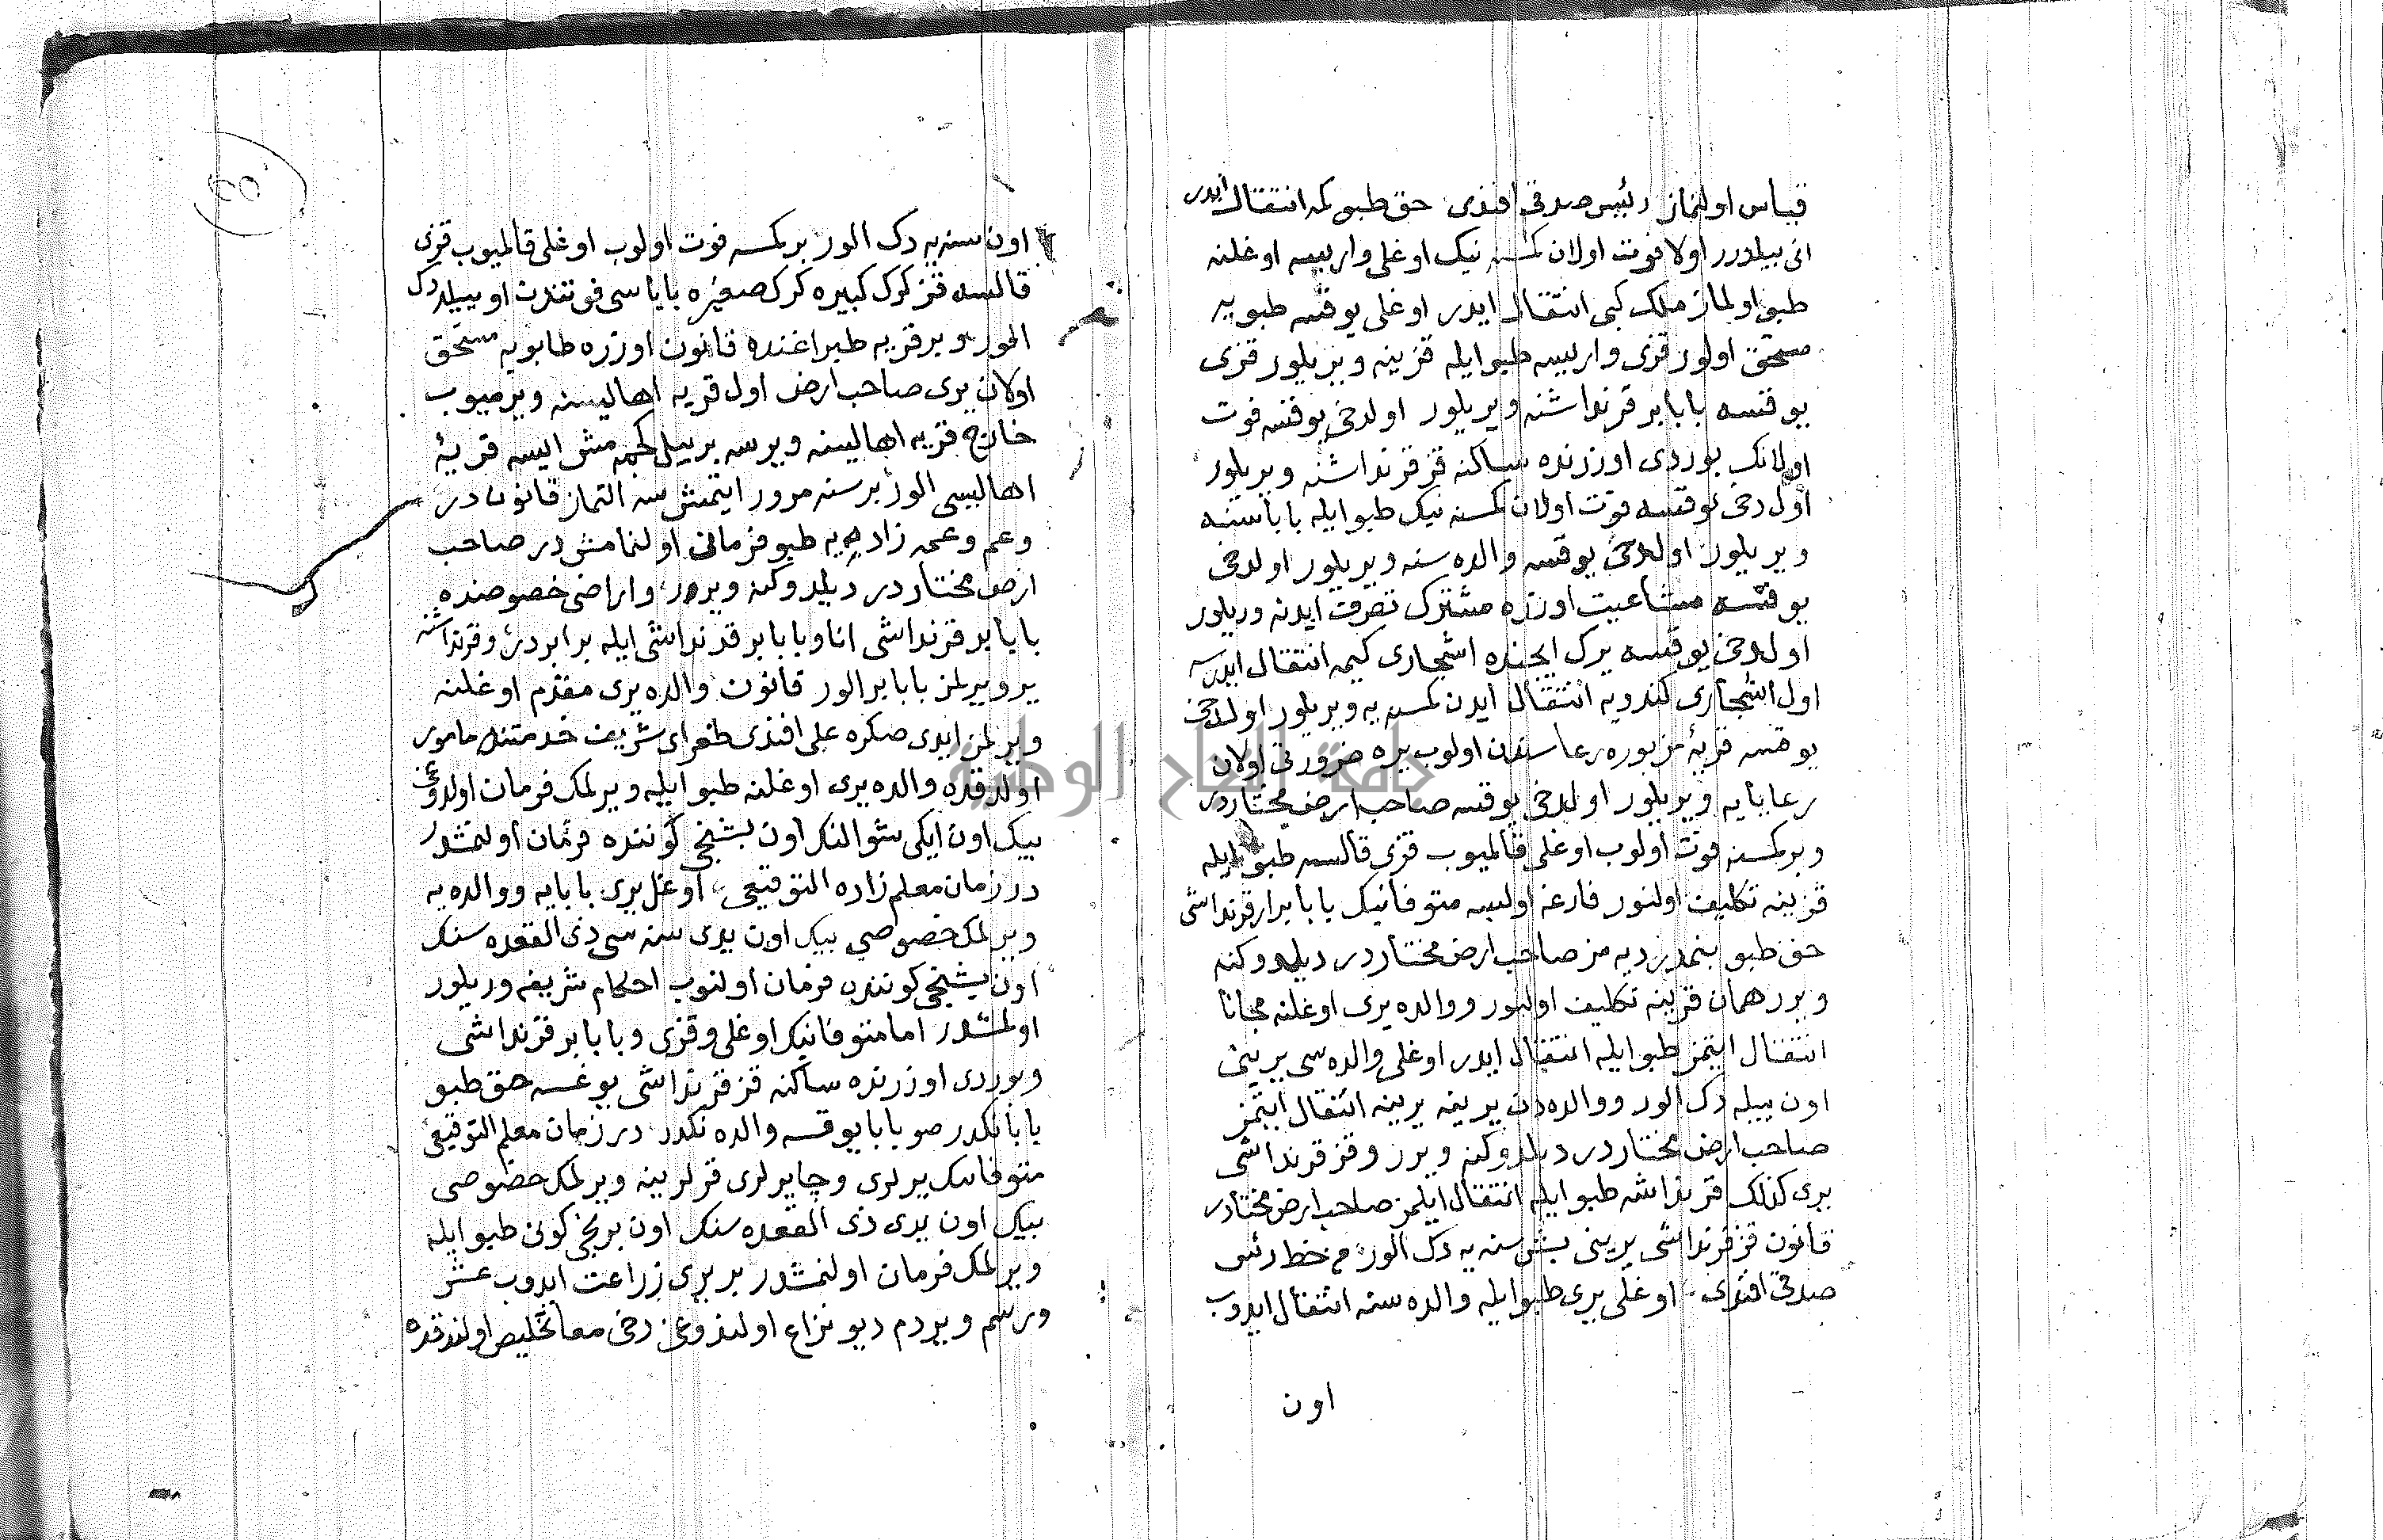 قیاس اولنماز رئیس صدقی افندی حق طبو کمه انتقال ایدر
انی بیلدرر اولا فوت اولان کمسنه نیک اوغلی وار ییسه اوغلنه
طبو اولماز ملک کبی انتقال ایدر اوغلی یوقسه طبویه
مستحق اولور قزی وار ییسه طبو ایله قزینه ویریلور قزی
یوقسه بابا بر قرنداشنه ویریلور اولدخی یوقسه فوت
اولانک یوردی اوزرنده ساکنه قز قرنداشنه ویریلور
اول دخی یوقسه فوت اولان کمسنه نیک طبو ایله باباسنه
ویریلور اولدخی یوقسه والده سنه ویریلور اولدخی
یوقسه مشاعیت اوزره مشترک تصرف ایدنه وریلور
اولدخی یوقسه یرک ایچنده اشجاری کیمه انتقال ایدرسه
اول اشجاری کندویه انتقال ایدن کمسنه یه ویریلور اولدخی
یوقسه قریۀ مزبوره رعاسندن اولوب یره ضرورتی اولان
رعایایه ویریلور اولدخی یوقسه صاحب ارض مختاردر
و بر کمسنه فوت اولوب اوغلی قالمیوب قزی قالسه طبو ایله
قزینه تکلیف اولنور فارغه اولیسه متوفانیک بابا برار قرنداشی
حق طبو بنمدر دیه مز صاحب ارض مختاردر دیلدوکنه
ویرر همان قزینه تکلیف اولنور و والده یری اوغلنه مجانا
انتقال ایتمز طبو ایله انتقال ایدر اوغلی والده سی یرینی
اون ییله دک الور و والده دن یرینه یرینه انتقال ایتمز
صاحب ارض مختاردر دیلدوکنه ویرر و قز قرنداشی
یری کذلک قرنداشه طبو ایله انتقال ایلمز صاحب ارض مختادر
قانون قز قرنداشی یرینی بش سنه یه دک الور م خط رئیس
صدقی افندی اوغلی یری طبو ایله والده سنه انتقال ایدوب
اون
اون سنه یه دک الور بر کمسه فوت اولوب اوغلی قالمیوب قزی
قالسه قز کرک کبیره کرک صغیره باباسی فوتندن اون ییلدک
الور و بر قریه طبراغنده قانون اوزره طابویه مستحق
اولان یری صاحب ارض اول قریه اهالیسنه ویرمیوب
خارج قریه اهالیسنه ویرسه بر ییل کچمه مش ایسه قریۀ
اهالیسی الور بر سنه مرور ایتمش سه التماز قانون در
و عم و عمه زاده یه طبو فرمانی اولنمامش در صاحب
ارض مختار در دیلدوکنه ویرور و اراضی خصوصنده
بابا بر قرنداشی انا و بابا بر قرنداشی ایله برابردر و قرنداشنه
یر ویریلمز بابا بر الور قانون والده یری مقدم اوغلنه
ویرلمز ایدی صکره علی افندی طغرای شریف خدمتنه مامور
اولدقده والده یری اوغلنه طبو ایله ویرلمک فرمان اولدوغی
بیک اون ایکی شوالنک اون بشنجی کوننده فرمان اولنمشدر
در زمان معلم زاده التوقیعی اوغل یری بابایه و والده یه
ویرلمک خصوصی بیک اون یدی سنه سی ذی القعده سنک
اون بشنجی کوننده فرمان اولنوب احکام شریفه وریلور
اولمشدر اما متوفانیک اوغلی و قزی و بابا بر قرنداشی
و یوردی اوزرنده ساکنه قز قرنداشی یوغسه حق طبو
بابانکدر صو بابا یوقسه والده نکدر در زمان معلم التوقیعی
متوفانیک یرلری و چایرلری قزلرینه ویرلمک خصوصی
بیک اون یدی ذی القعده سنک اون برنجی کونی طبو ایله
ویرلمک فرمان اولنمشدر بر یری زراعت ایدوب عشر
و رسم ویردم دیو نزاع اولندوغی دخی معا تخلیص اولندقده